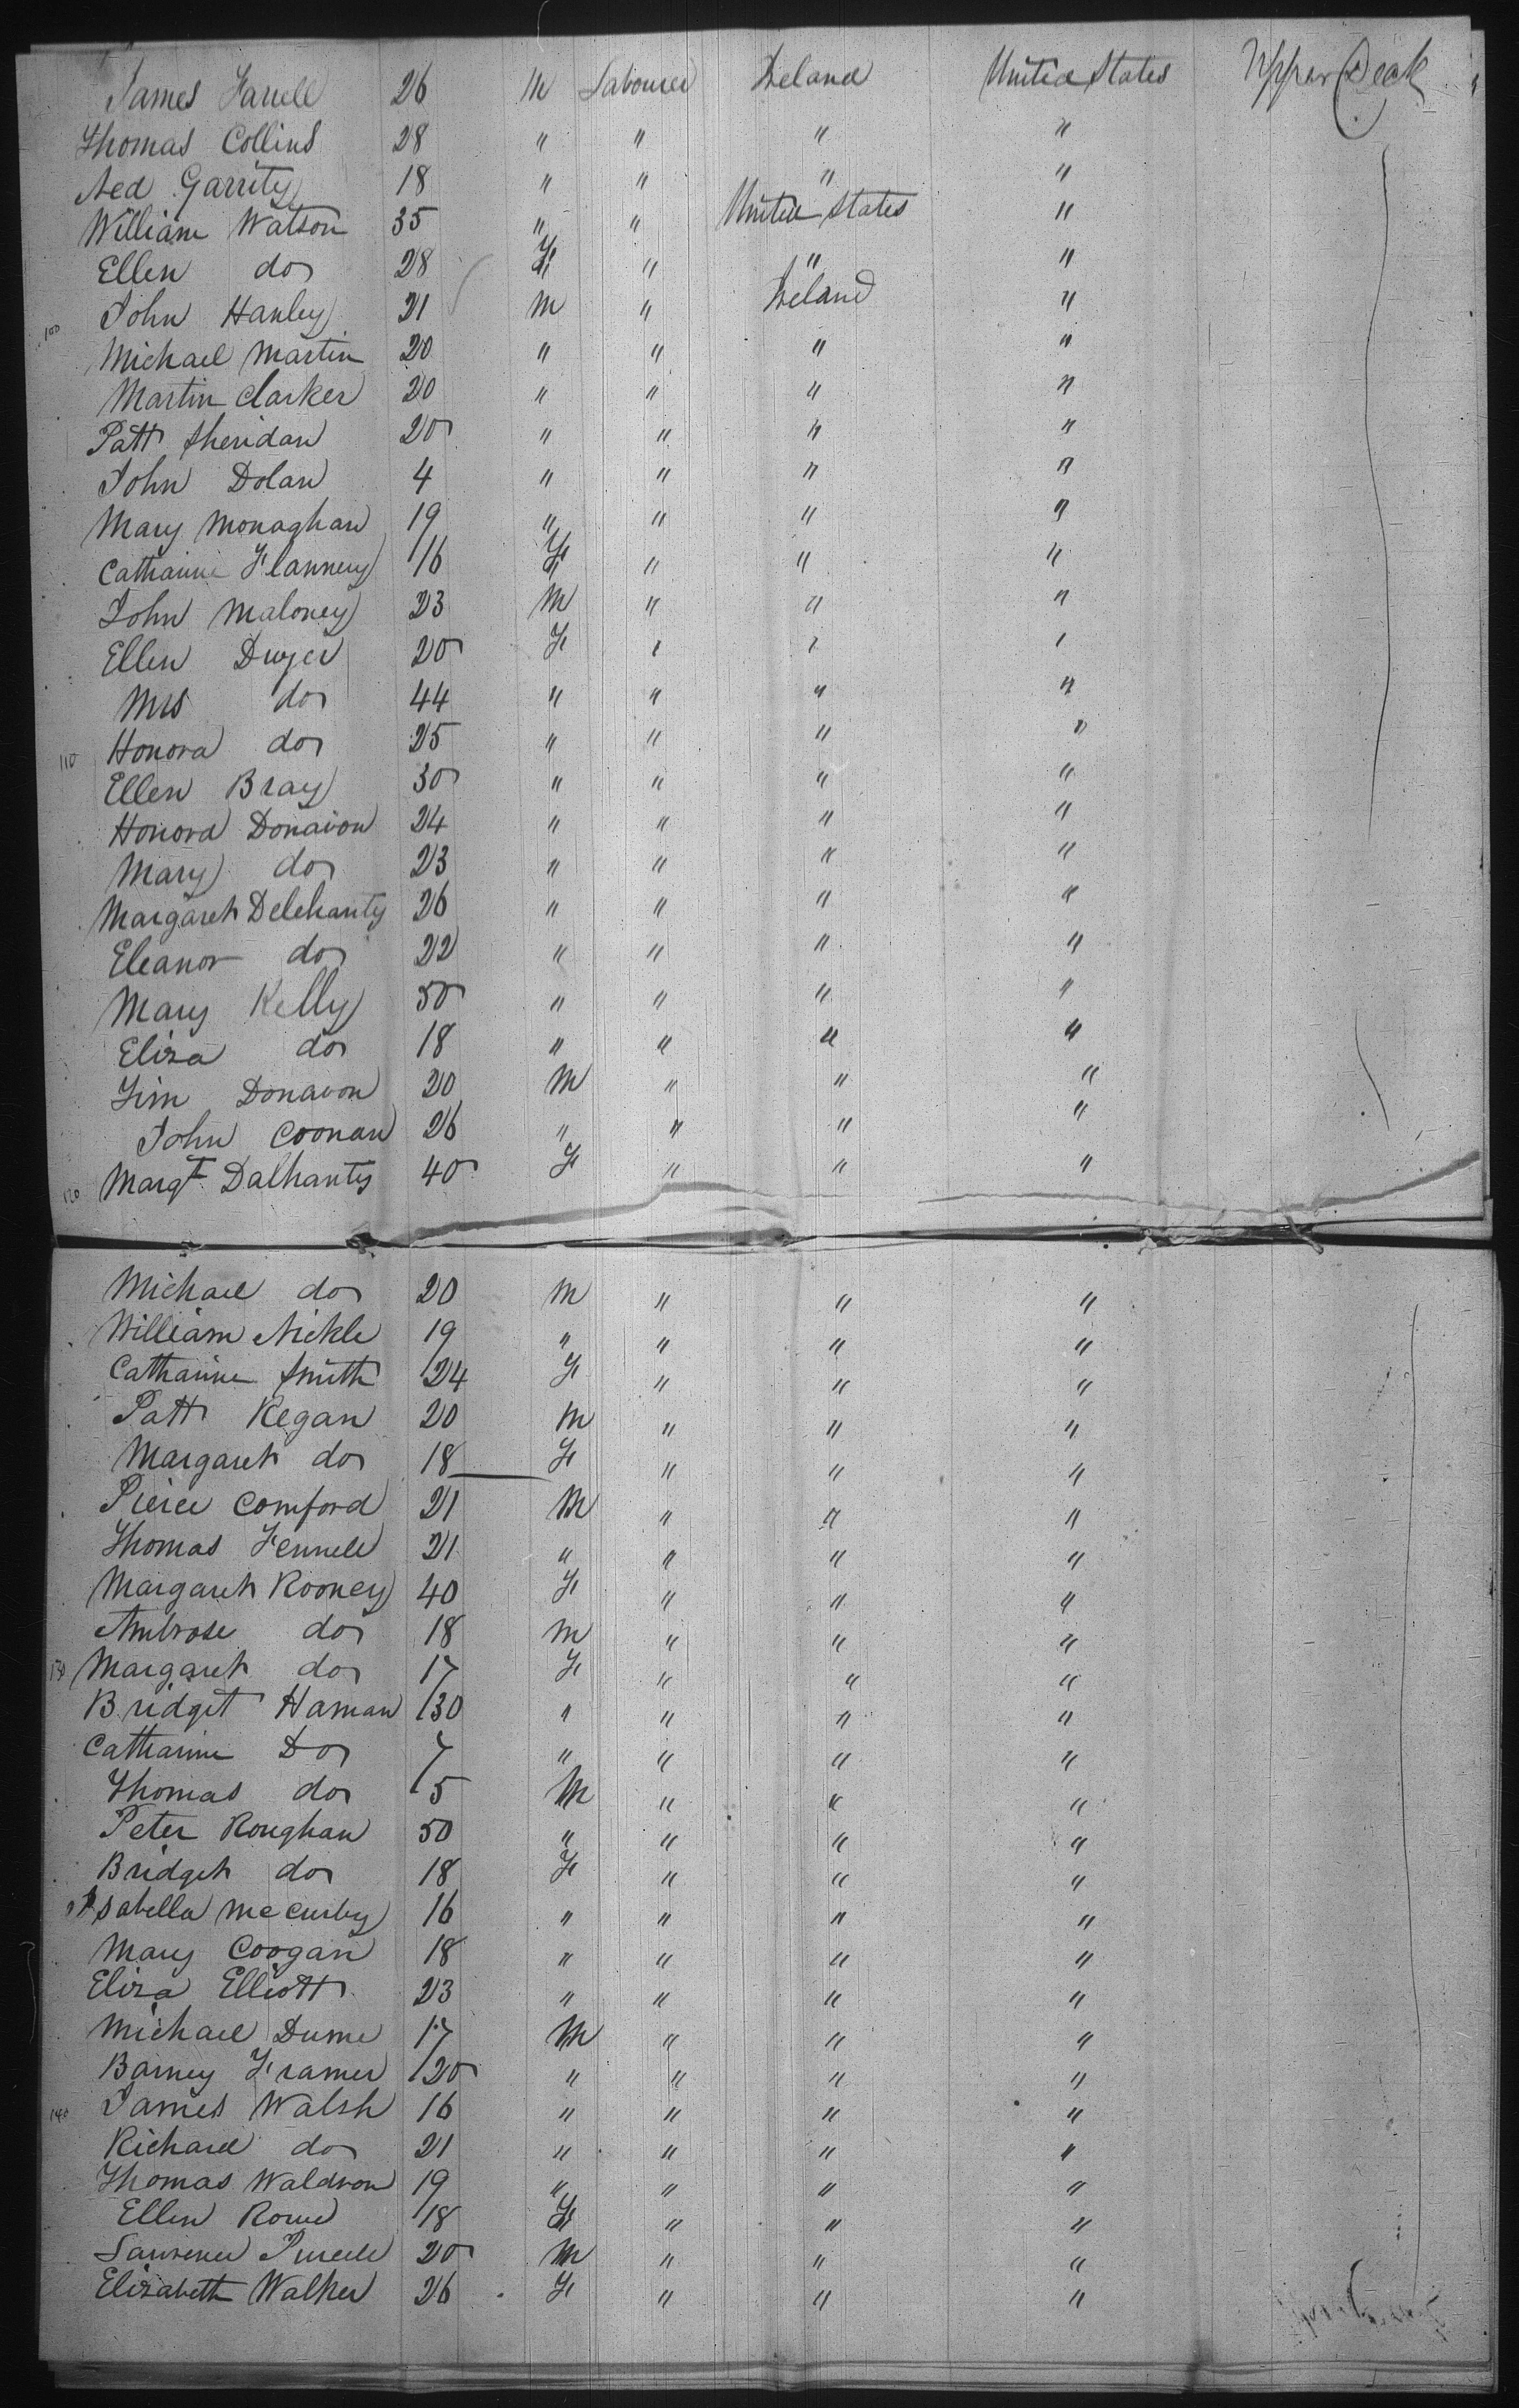 James Farrell 26 M Labourer Ireland United States Upper Deck
Thomas Collins 28 " " " "
Ned Garrity 18 " " " "
William Watson 35 " " United States "
Ellen do 28 F " " "
100 John Hanley 21 M " Ireland "
Michael Martin 20 " " " "
Martin Clarker 20 " " " "
Patt Sheridan 20 " " " "
John Dolan 4 " " " "
Mary Monaghan 19 " " " "
Catharine Flannery 16 F " " "
John Maloney 23 M " " "
Ellen Dwyer 20 F " " "
Mrs do 44 " " " "
110 Honora do 25 " " " "
Ellen Bray 30 " " " "
Honora Donavon 24 " " " "
Mary do 23 " " " "
Margaret Delehanty 26 " " " "
Eleanor do 22 " " " "
Mary Kelly 50 " " " "
Eliza do 18 " " " "
Jim Donavon 20 M " " "
John Coonan 26 " " " "
120 Margt Dalhanty 40 F " " "
Michael do 20 M " " "
William Nickle 19 " " " "
Catharine Smith 24 F " " "
Patt Regan 20 M " " "
Margaret do 18 F " " "
Pierce Comford 21 M " " "
Thomas Fennell 21 " " " "
Margaret Rooney 40 F " " "
Ambrose do 18 M " " "
130 Margaret do 17 F " " "
Bridget Haman 30 " " " "
Catharine Do 7 " " " "
Thomas do 5 M " " "
Peter Roughan 50 " " " "
Bridget do 18 F " " "
Isabella McCurley 16 " " " "
Mary Coogan 18 " " " "
Eliza Elliott 23 " " " "
Michael Dume 17 M " " "
Barney Framer 20 " " " "
140 James Walsh 16 " " " "
Richard do 21 " " " "
Thomas Waldron 19 " " " "
Ellen Rowe 18 F " " "
Lawrence Purcell 20 M " " "
Elizabeth Walker 26 F " " "